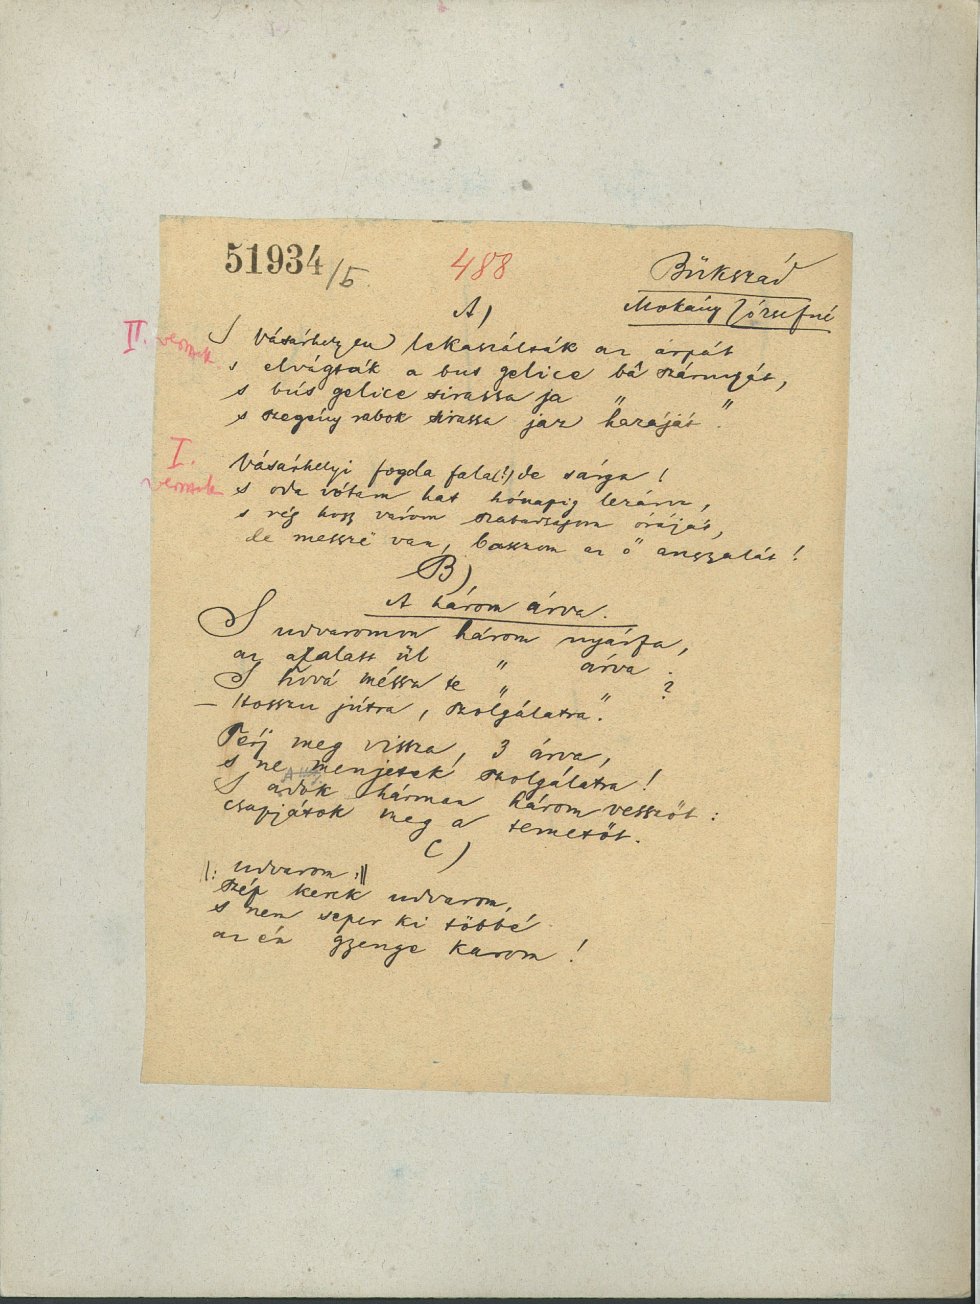 51934/5.
488
Bükszád
Mokány Józsefné
A)
II. versnek
S Vásárhelyen lekaszálták az árpát
s elvágták a bus gelice bâ szárnyát,
s bús gelice sirassa ja " "
s szegény rabok sirassa jaz hazáját.
I.
versnek
Vásárhelyi fogda fala(!) de sárga!
s oda vótam hat hónapig lezárva,
s rég hogy várom szabadságom óráját,
de messze van, baszom az ő anygalát!
B)
A három árva.
S udvaromon három nyárfa,
az alatt ül " árva.
S hová méssz te " ?
– Hosszu jútra, szolgálatra".
Térj meg vissza, 3 árva,
s ne menjetek szolgálatra!
S adok hárman három vesszőt:
csapjátok meg a temetőt.
C)
|: udvarom :||
szép kerek udvarom,
s nem seper ki többé
az én gyenge karom!